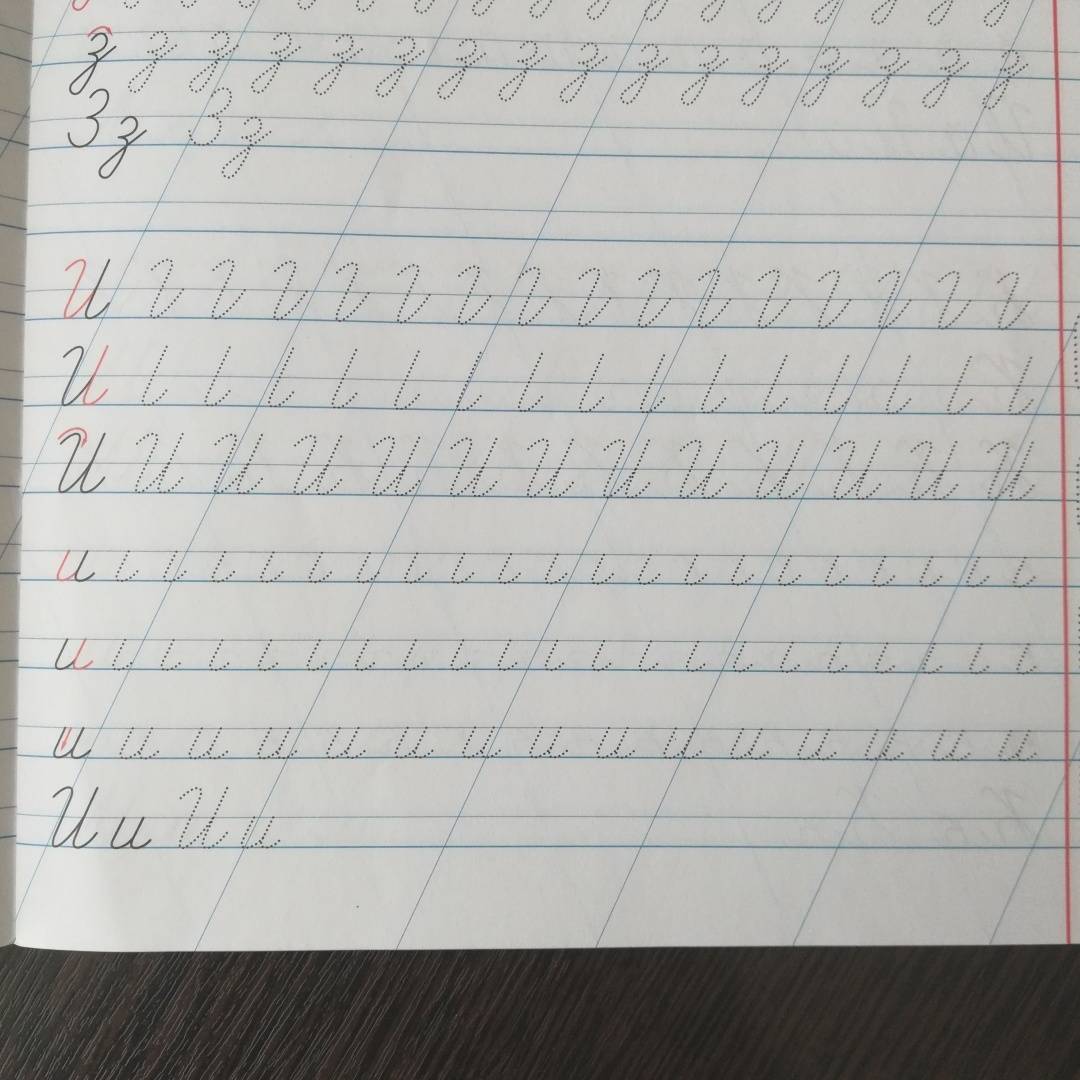 з з з з з з з з з з з з з з з з
Зз Зз
И
И
И И И И И И И И И И И И И
и
и
и и и и и и и и и и и и и и и
И и И и